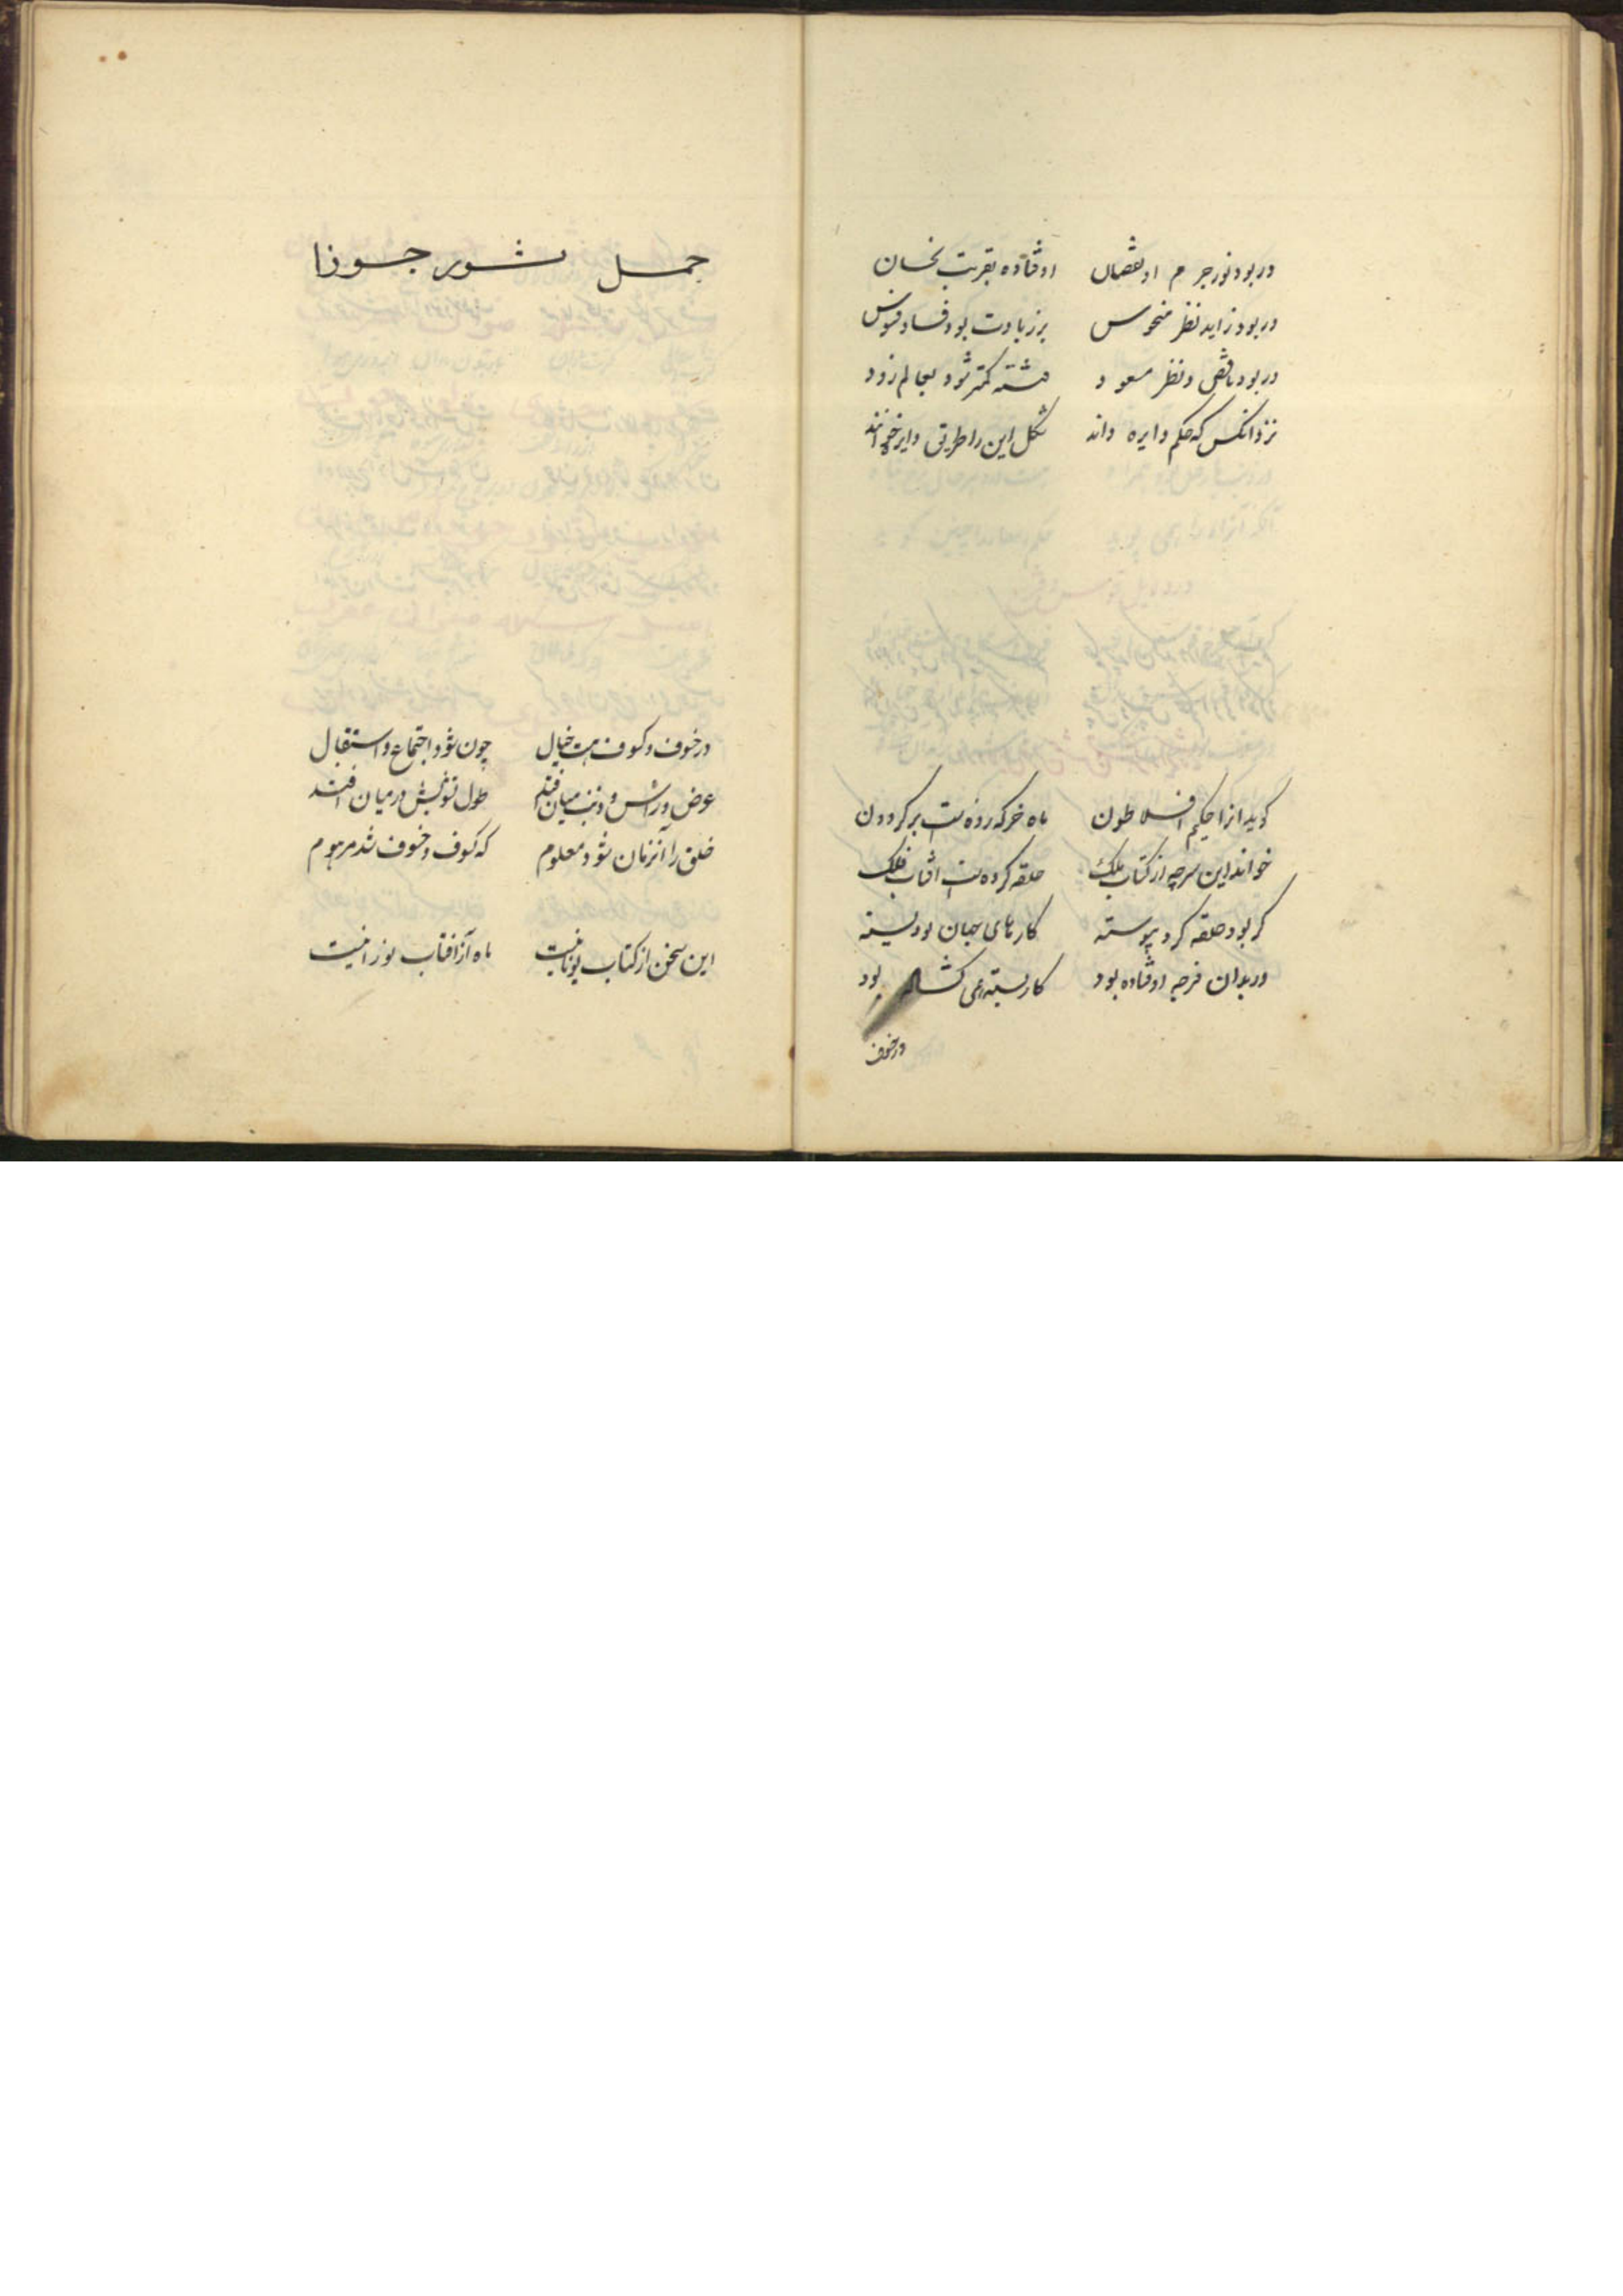 در بود نور جرم او نقصان اوفتاده بقربت نحسان
در بود زاید نظر منحوس بر زیادت بود فساد و فسوس
در بود ناقص و نظر مسعود فتنه کمتر شود بعالم زود
نزد انکس که حکم دایره داند شکل این را طریق دایره خواند
کوید انرا حکیم افلاطون ماه خرکه زده است بر کردون
خواند این سر چه از کتاب ملک حلقه کرده است افتاب فلک
کر بود حلقه کرد پیوسته کارهای جهان بود بسته
ور بدان فرجه اوفتاده بود کار بسته همی کشاده بود
در خسوف
حمل ثور جوزا
در خسوف و کسوف بیت خیال چون شود اجتماع و استقبال
عرض در راس و ذنب میان افتد طول توبش درمیان افتد
خلق را آنزمان شود معلوم که کسوف و خسوف شد مرهوم
این سخن از کتاب یونانیست ماه آز افتاب نورانیست